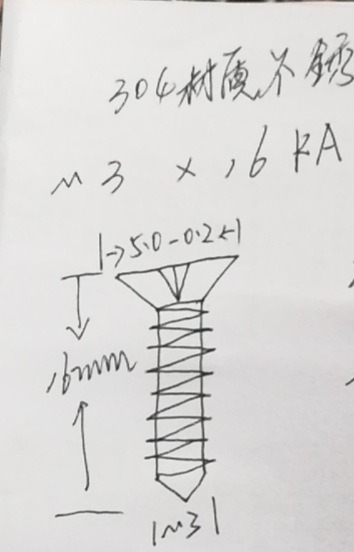 304材质不锈
M3 × 16 KA
5.0-0.2
16mm
M3